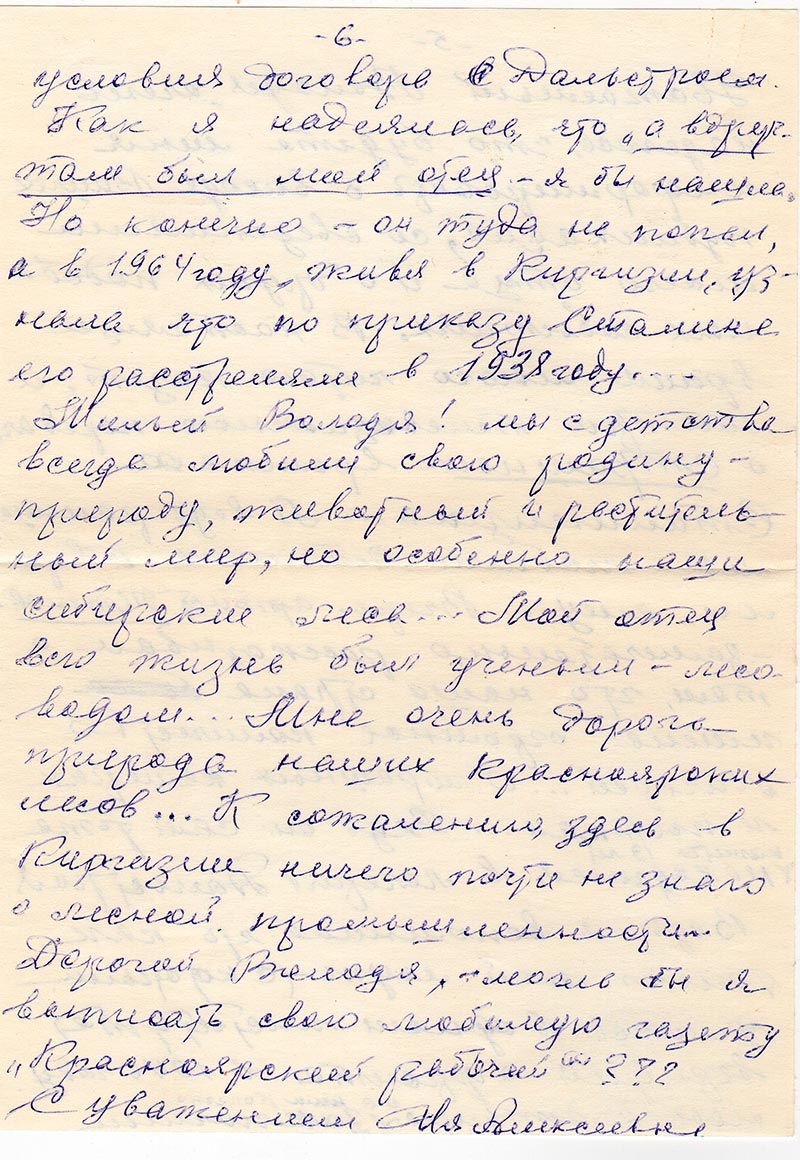 -6-
условия договора с Дальстроем.
Как я надеялась, что „а вдруг
там был мой отец – я бы нашла.
Но конечно – он туда не попал,
а в 1964 году, живя в Киргизии, уз-
нала что по приказу Сталина
его расстреляли в 1938 году...
Милый Володя! мы с детства
всегда любили свою родину –
природу, животный и раститель-
ный мир, но особенно наши
сибирские леса... Мой отец
всю жизнь был ученым – лесо-
водом... Мне очень дорога
природа наших Красноярских
лесов... К сожалению, здесь в
Киргизии ничего почти не знаю
о лесной промышленности...
Дорогой Володя, – могла бы я
выписать свою любимую газету
„Красноярский рабочий“ ???
С уважением Алексеевна